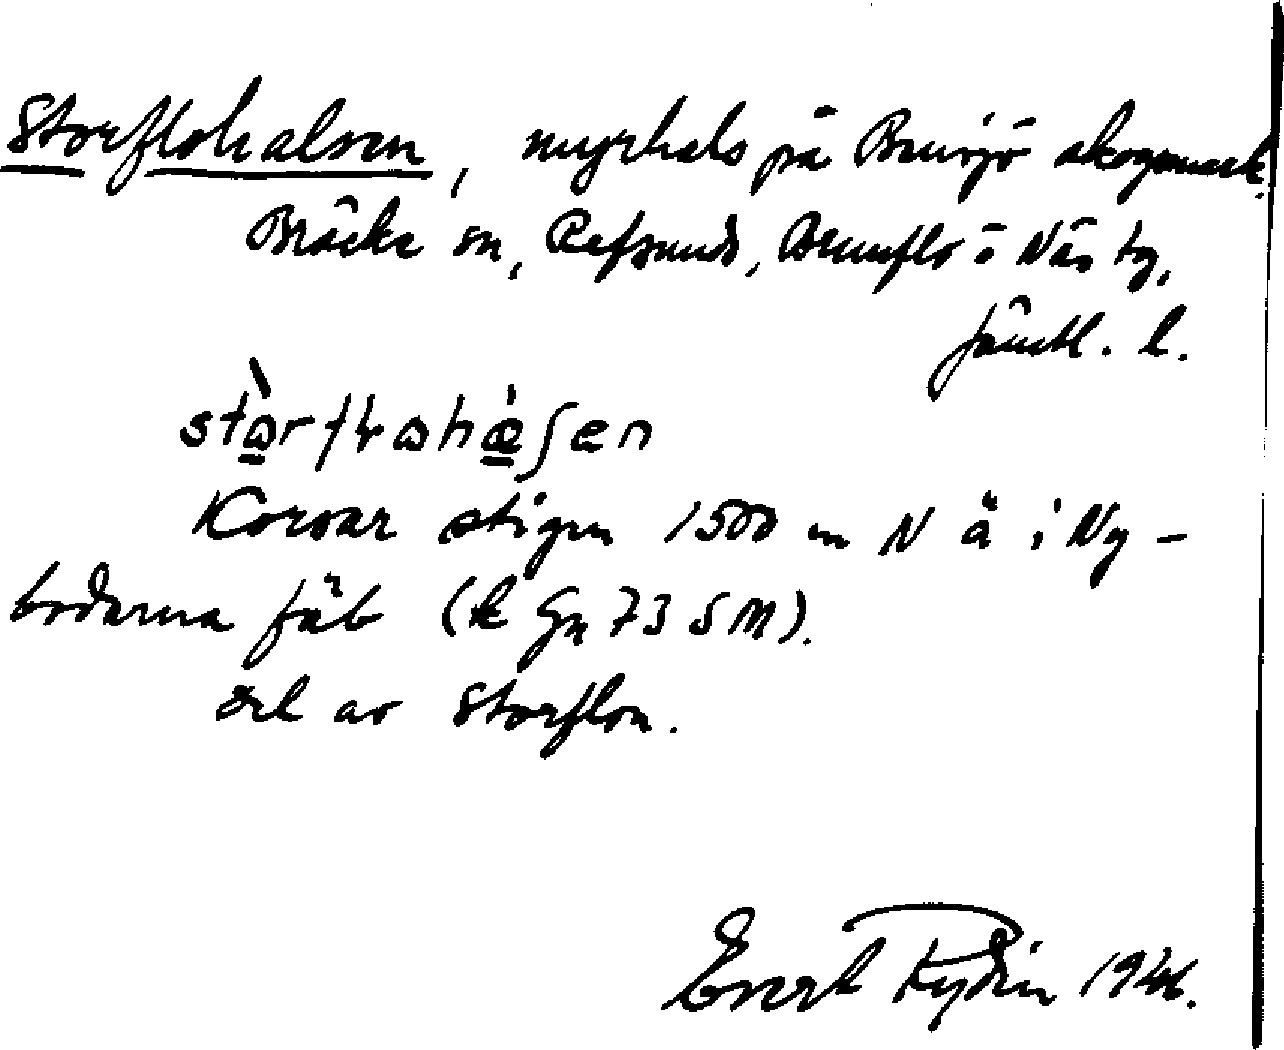 Storflohalsen, myrhals på Bensjö skogsmark.
Bräcke sn, Refsunds, Brunflo o Näs tg,
Jämtl. l.
stɷ̀rflɷhæ̀ʃen
Korsar stigen 1500 m N ä i Ny-
bodarna fäb (k Gn 73 S M).
del av Storflon.
Evert Rydin 1946.